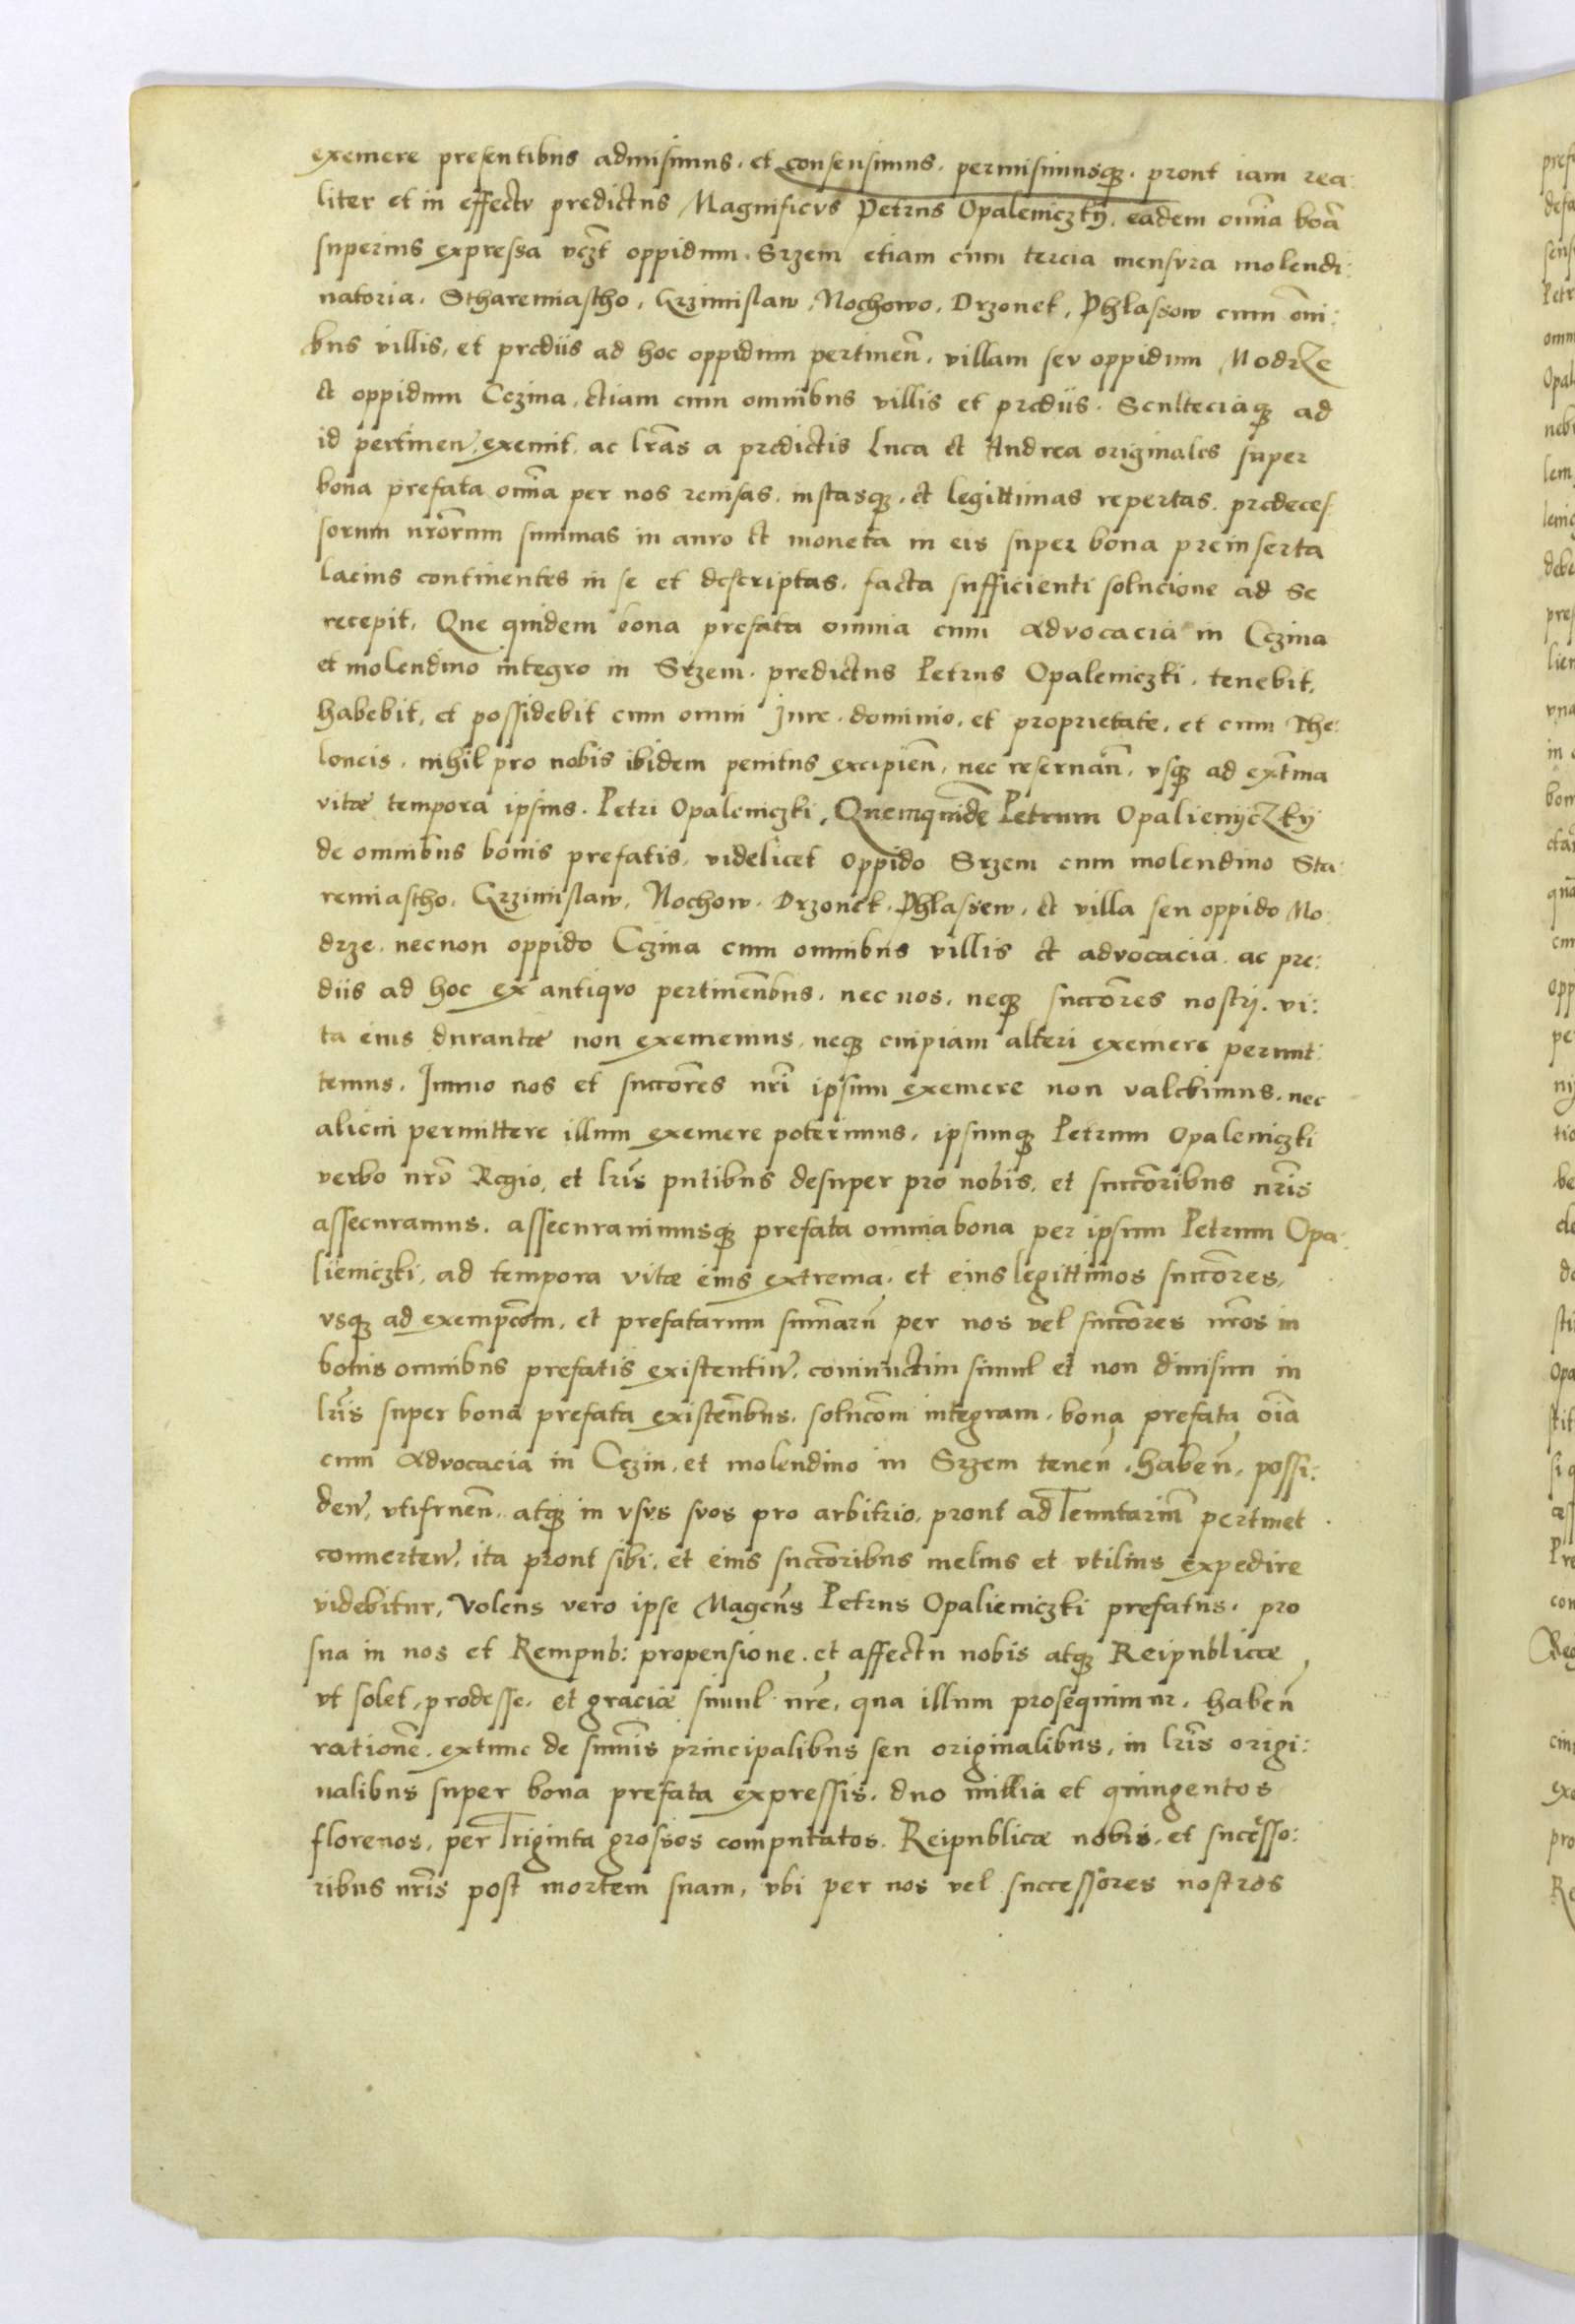 exemere presentibus admisimus, et consensimus, permisimusq₃, prout iam rea:
liter et in effectv predictus Magnificvs Petrus Opaleniczky, eadem omīa boā
superius expressa vcꝫt oppidum Srzem etiam cum tercia mensvra molendi:
natoria, Stharemiastho, Grzimislaw, Nochowo, Drzonek, Phlassow cum om̄i:
bus villis, et prediis ad hoc oppidum pertinen̄, villam sev oppidum Modrze
et oppidum Cczina, etiam cum omnibus villis et prediis, Scultecia q₃ ad
id pertinen̄, exemit, ac lr̄as a predictis Luca et Andrea originales super
bona prefata omīa per nos reuisas, iustasq₃, et legittimas repertas, predeces
sorum nr̄orum summas in auro et moneta in eis super bona preinserta
lacius continentes in se et descriptas, facta sufficienti solucione ad se
recepit, Que quidem bona prefata omnia cum Advocacia in Cczina
et molendino integro in Srzem, predictus Petrus Opaleniczki, tenebit,
habebit, et possidebit cum omni Jure, dominio, et proprietate, et cum The:
loneis, nihil pro nobis ibidem penitus excipien̄, nec reseruan̄, vsq₃ ad ext̄ma
vitæ tempora ipsius Petri Opaleniczki, Quemquidē Petrum Opalienyczky
de omnibus bonis prefatis, videlicet oppido Srzem cum molendino Sta:
remiastho, Grzimislaw, Nochow, Drzonek, Phlassew, et villa seu oppido Mo:
drze, necnon oppido Cczina cum omnibus villis et advocacia, ac pre:
diis ad hoc ex antiqvo pertinen̄bus, nec nos, neq₃ succ̄ores nostrj, vi:
ta eius durantæ non exememus, neq₃ cuipiam alteri exemere permit:
temus, Immo nos et succ̄ores nr̄i ipsum exemere non valebimus, nec
alicui permittere illum exemere poterimus, ipsumq₃ Petrum Opaleniczki
verbo nr̄o Regio, et lr̄is pn̄tibus desuper pro nobis, et succ̄oribus nr̄is
assecuramus, assecurauimusq₃ prefata omnia bona per ipsum Petrum Opa:
lieniczki, ad tempora vitæ eius extrema, et eius legittimos succ̄ores,
vsq₃ ad exempc̄om, et prefatarum summarū per nos vel succ̄ores nr̄os in
bonis omnibus prefatis existentiū, coniunctim simul et non diuisim in
lr̄is super bona prefata existen̄bus, soluc̄om integram, bona prefata oīa
cum Advocacia in Cczin, et molendino in Srzem tenen̄, haben̄, possi:
den̄, vtifruen̄, atq₃ in vsvs svos pro arbitrio, prout ad Tenutariū pertinet
conuerten̄, ita prout sibi, et eius succ̄oribus melius et vtilius expedire
videbitur, Volens vero ipse Magcūs Petrus Opalieniczki prefatus, pro
sua in nos et Rempub: propensione, et affectu nobis atq₃ Reipublicæ
vt solet, prodesse, et graciæ simul nr̄e, qua illum prosequimur, haben̄
rationē, extunc de sum̄is principalibus seu originalibus, in lr̄is origi:
nalibus super bona prefata expressis, duo millia et quingentos
florenos, per Triginta grossos computatos, Reipublicæ nobis, et successo:
ribus nr̄is post mortem suam, vbi per nos vel successores nostros